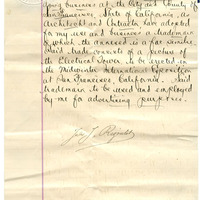 doing business at the City and County of
San Francisco, State of California, as
Architect and Contractor have adopted
for my use and business a trademark
of which the annexed is a fac simile.
Said trade consists of a picture of
the Electrical Tower to be erected in
the Midwinter International Exposition
at San Francisco, California. Said
trademark to be used and employed
by me for advertising purposes.
Reynolds